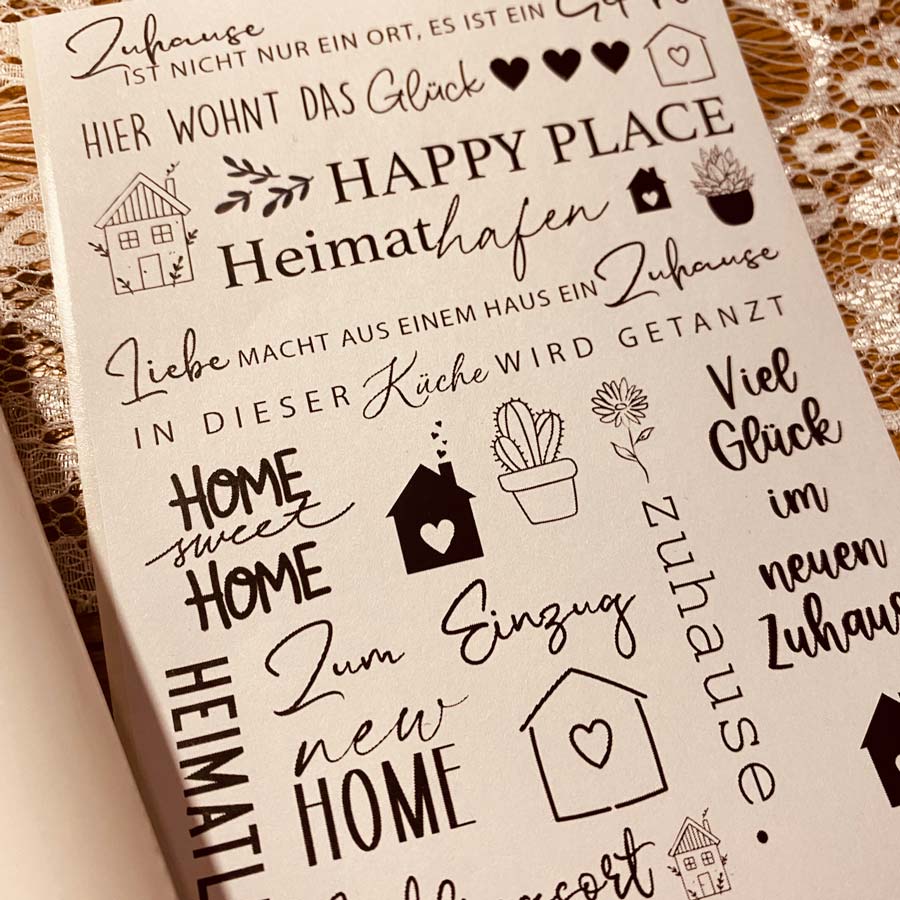 Zuhause
IST NICHT NUR EIN ORT, ES IST EIN
HIER WOHNT DAS Glück
HAPPY PLACE
Heimathafen
Liebe MACHT AUS EINEM HAUS EIN Zuhause
IN DIESER Küche WIRD GETANZT
Viel
Glück
im
neuen
HOME
sweet
HOME
zuhause.
Zum Einzug
new
HOME